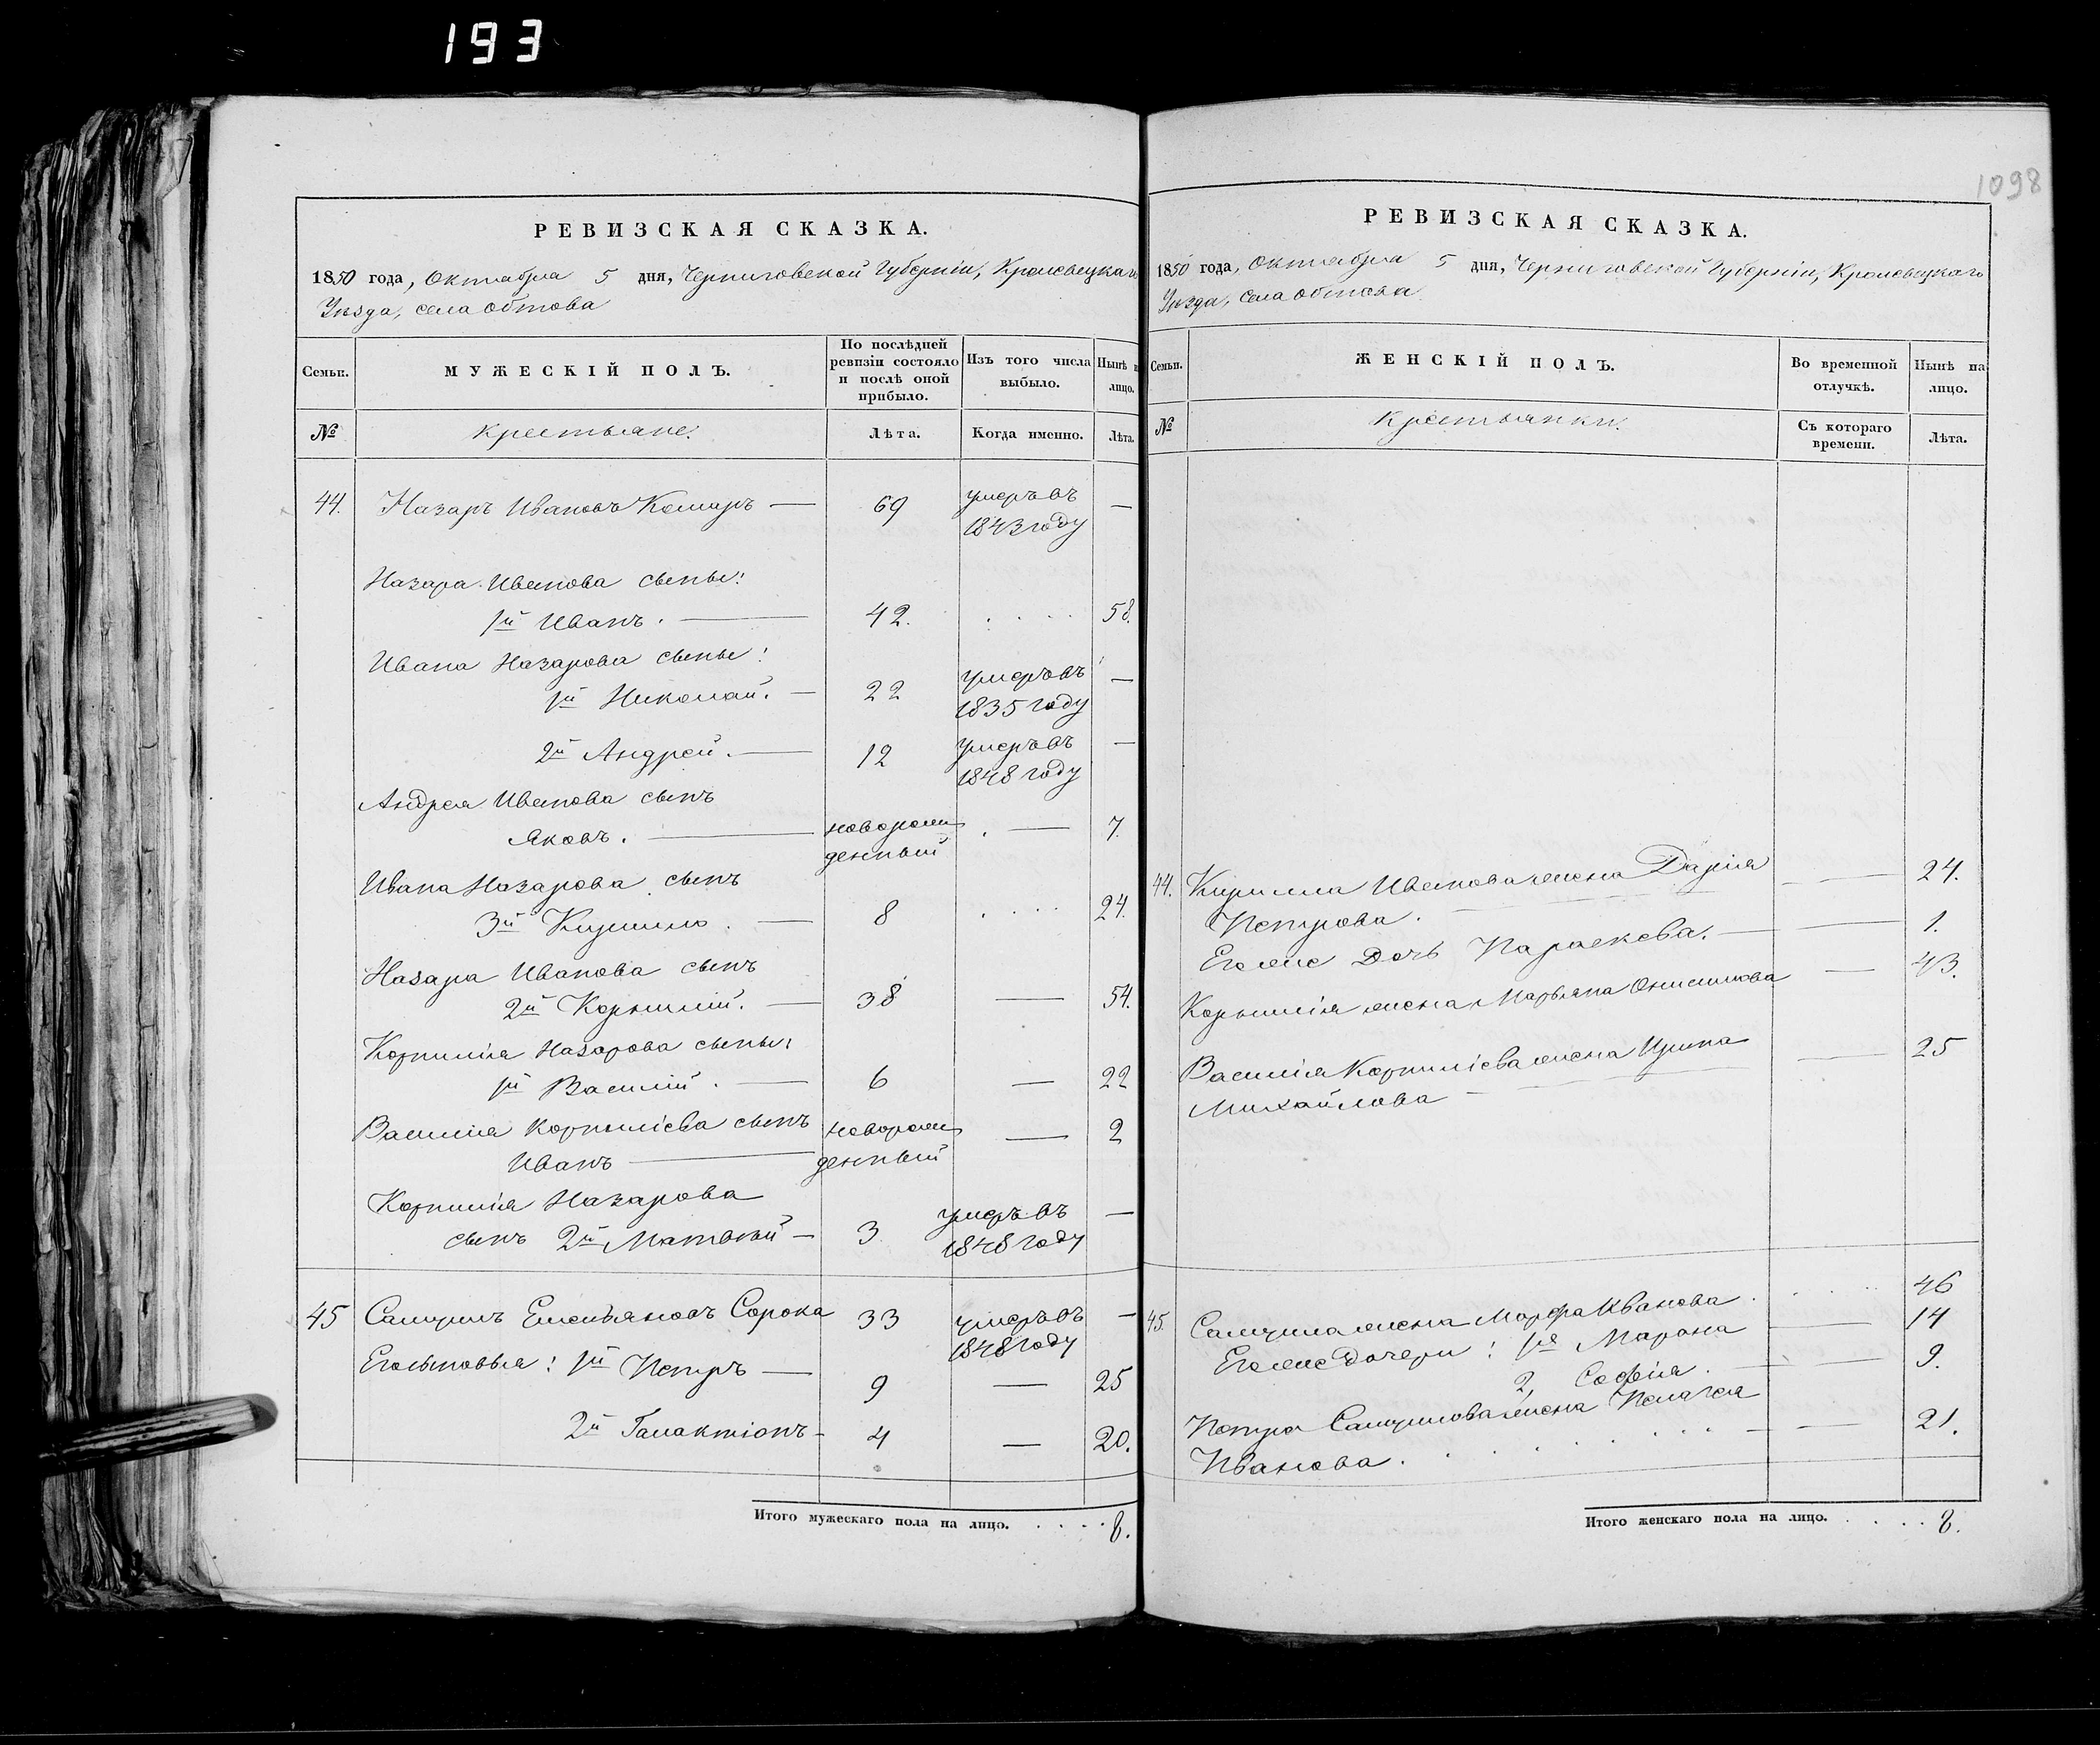 193
1098
РЕВИЗСКАЯ СКАЗКА.
1850 года, Октября 5 дня, Черниговской Губерніи, Кролевецкаго
Уѣзда, села Обтова
Семьи.
МУЖЕСКІЙ ПОЛЪ.
По послѣдней ревизіи состояло и послѣ оной прибыло.
Изъ того числа выбыло.
Нынѣ на лицо.
№
Крестьяне.
Лѣта.
Когда именно.
Лѣта.
44. Назаръ Ивановъ Комаръ — 69 умеръ въ —
1843 году
Назара Иванова сыны:
1й Иванъ. — 42. . . . . 58.
Ивана Назарова сыны:
1й Николай. — 22 умеръ въ —
1835 году
2й Андрей. — 12 умеръ въ —
1848 году
Андрея Иванова сынъ
Яковъ. — новорож . — 7.
денный
Ивана Назарова сынъ
3й Кирило. — 8 . . . . 24.
Назара Иванова сынъ
2й Корнилій. — 38 — 54.
Корнилія Назарова сыны:
1й Василій. — 6 — 22
Василія Корниліева сынъ новорож — 2
Иванъ — денный
Корнилія Назарова умеръ въ —
сынъ 2й Матвѣй — 3 1848 году
45 Самуилъ Емельяновъ Сорока 33 умеръ въ —
1848 году
Его сыновья: 1й Петръ — 9 — 25
2й Галактіонъ — 4 — 20.
Итого мужескаго пола на лицо. . . . . 8.
РЕВИЗСКАЯ СКАЗКА.
1850 года, Октября 5 дня, Черниговской Губерніи, Кролевецкаго
Уѣзда, села Обтова
Семьи.
ЖЕНСКІЙ ПОЛЪ.
Во временной отлучкѣ.
Нынѣ на лицо.
№
Крестьянки.
Съ котораго времени.
Лѣта.
44. Кирилла Иванова жена Дарія — 24.
Петрова.
Его же Дочь Параскева. — 1.
Корнилія жена Марьяна Онисимова — 43.
Василія Корниліева жена Ирина — 25
Михайлова —
45. Самуила жена Марфа Иванова . . . . 46
Его же Дочери: 1я Марѳна — 14
2, Софія. — 9.
Петра Самуилова жена Пелагея — 21.
Иванова.
Итого женскаго пола на лицо. . . . . 8.